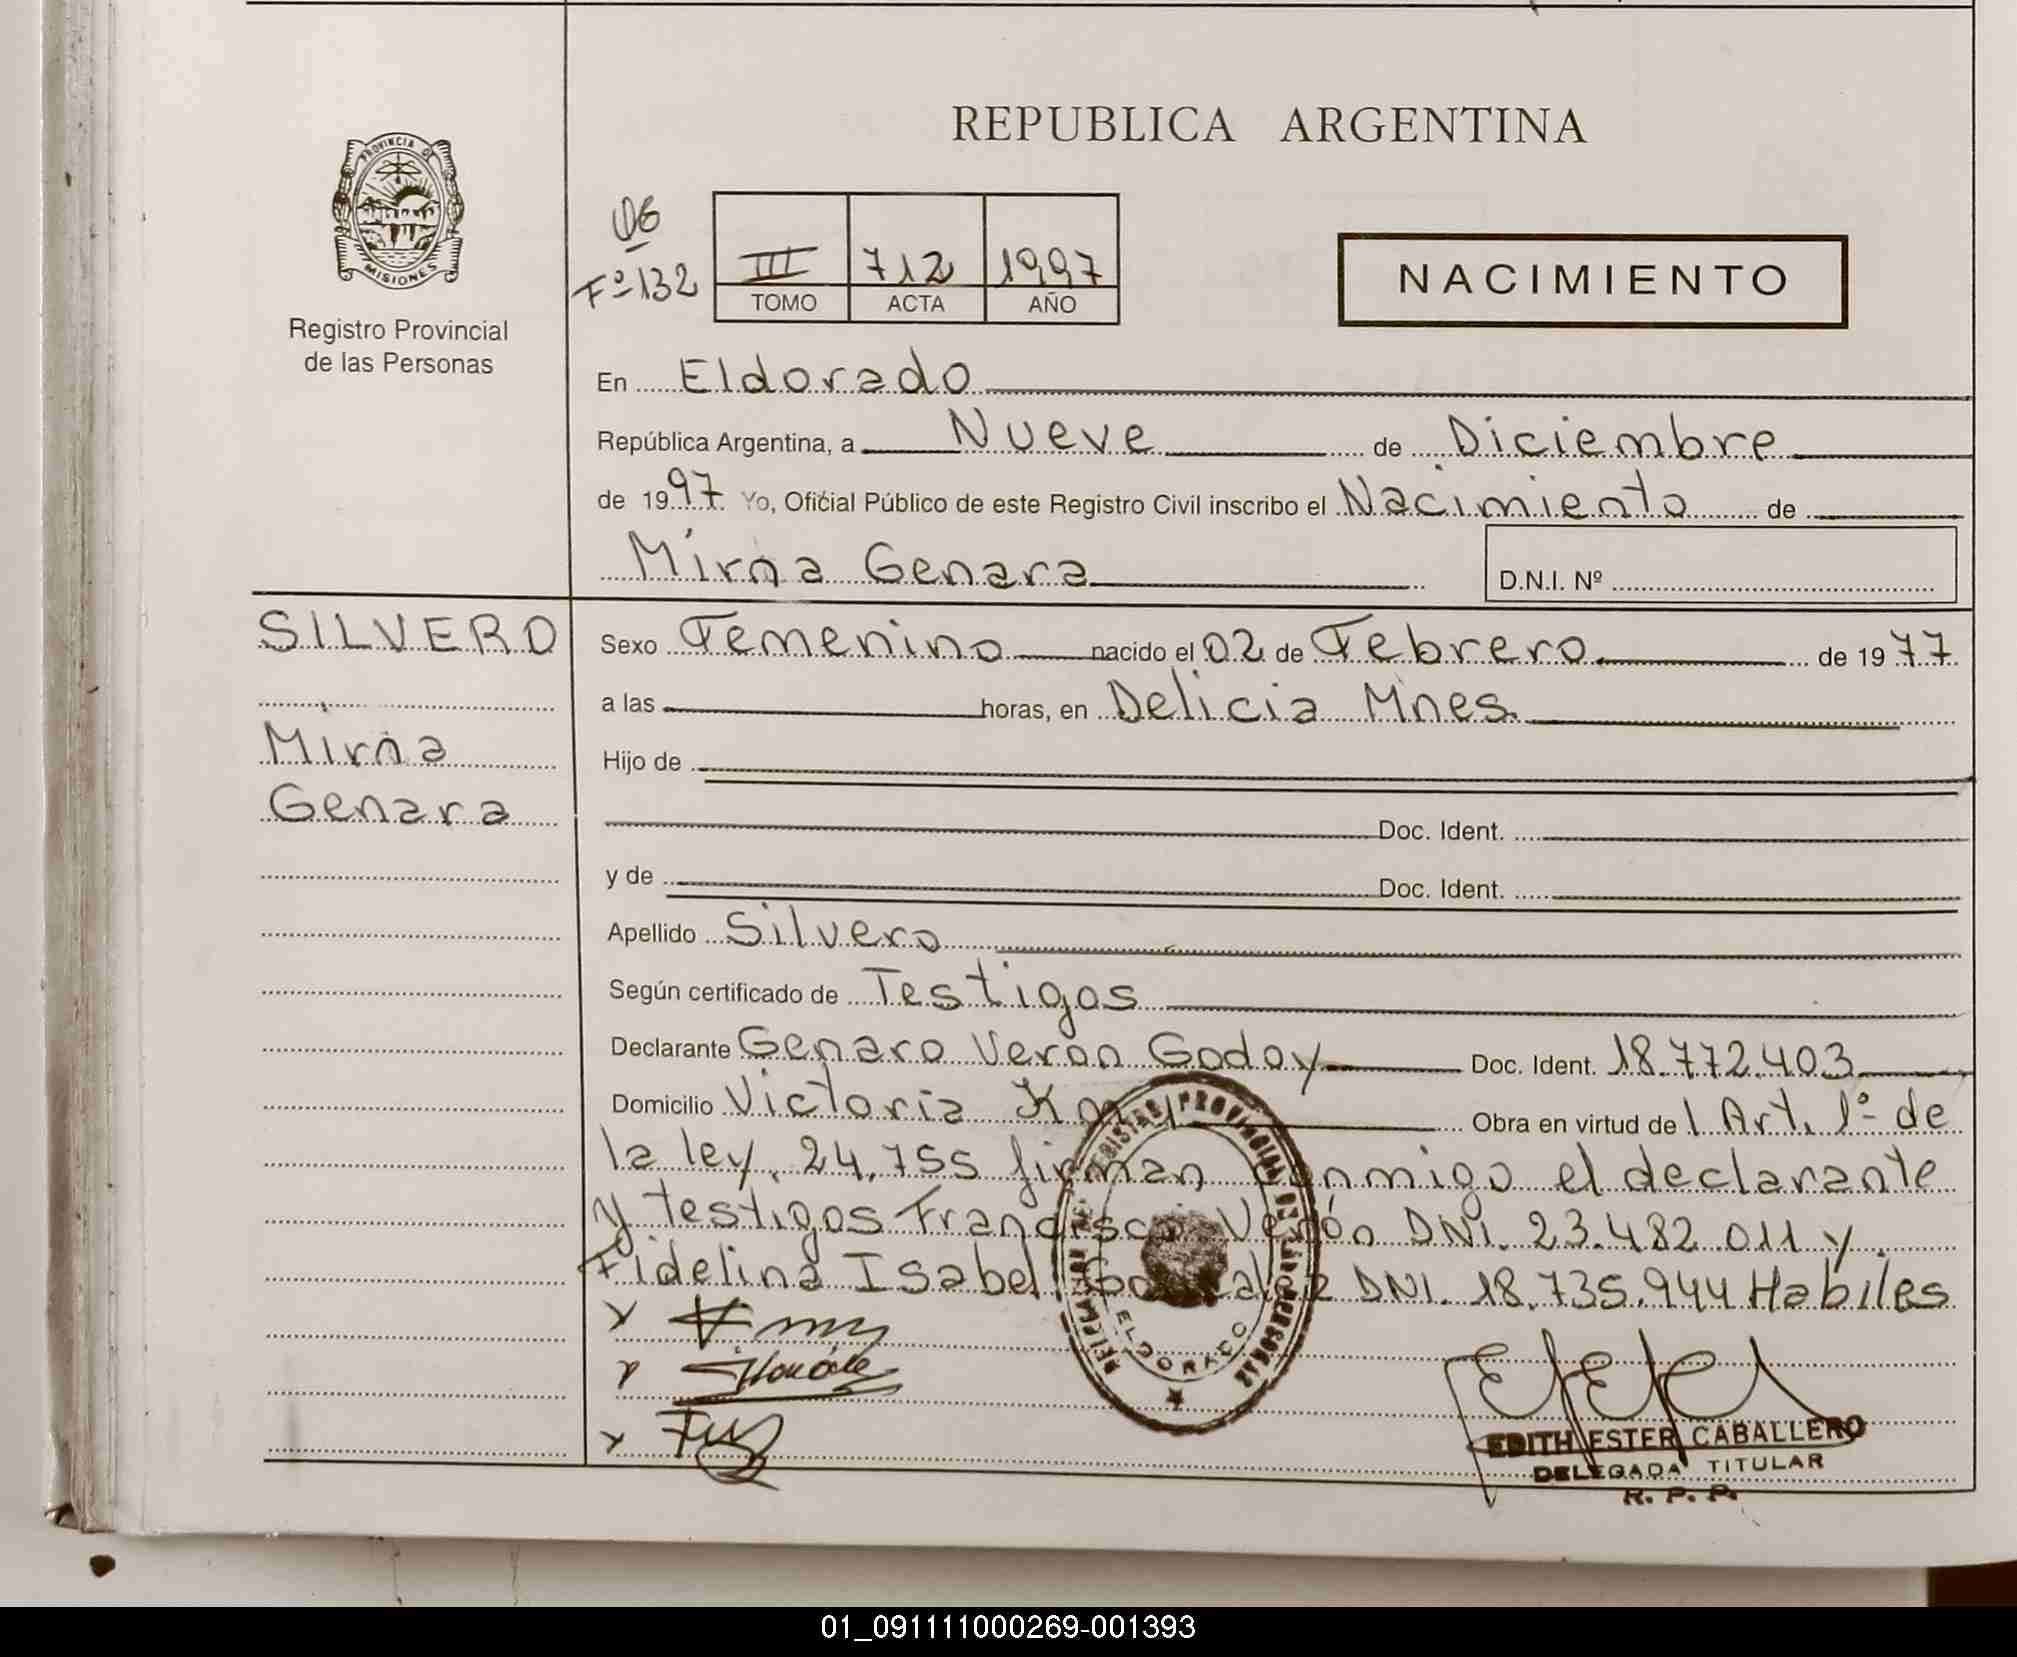 REPUBLICA ARGENTINA
PROVINCIA DE
MISIONES
Registro Provincial
de las Personas
Fº 132
III 712 1997
TOMO ACTA AÑO
NACIMIENTO
En Eldorado
República Argentina, a Nueve de Diciembre
de 1997 Yo, Oficial Público de este Registro Civil inscribo el Nacimiento de
Mirna Genara D.N.I. Nº
SILVERO
Mirna
Genara
Sexo Femenino nacido el 02 de Febrero de 1977
a las horas, en Delicia Mnes.
Hijo de
Doc. Ident.
y de Doc. Ident.
Apellido Silvero
Según certificado de Testigos
Declarante Genaro Veron Godoy Doc. Ident. 18.772.403
Domicilio Victoria Km Obra en virtud del Art. 1º de
la ley. 24.755 firman conmigo el declarante
y testigos Francisco Verón DNI. 23.482.011 y
Fidelina Isabel Gonzalez DNI. 18.735.944 Habiles
ELDORADO
EDITH ESTER CABALLERO
DELEGADA TITULAR
R. P. P.
01_091111000269-001393